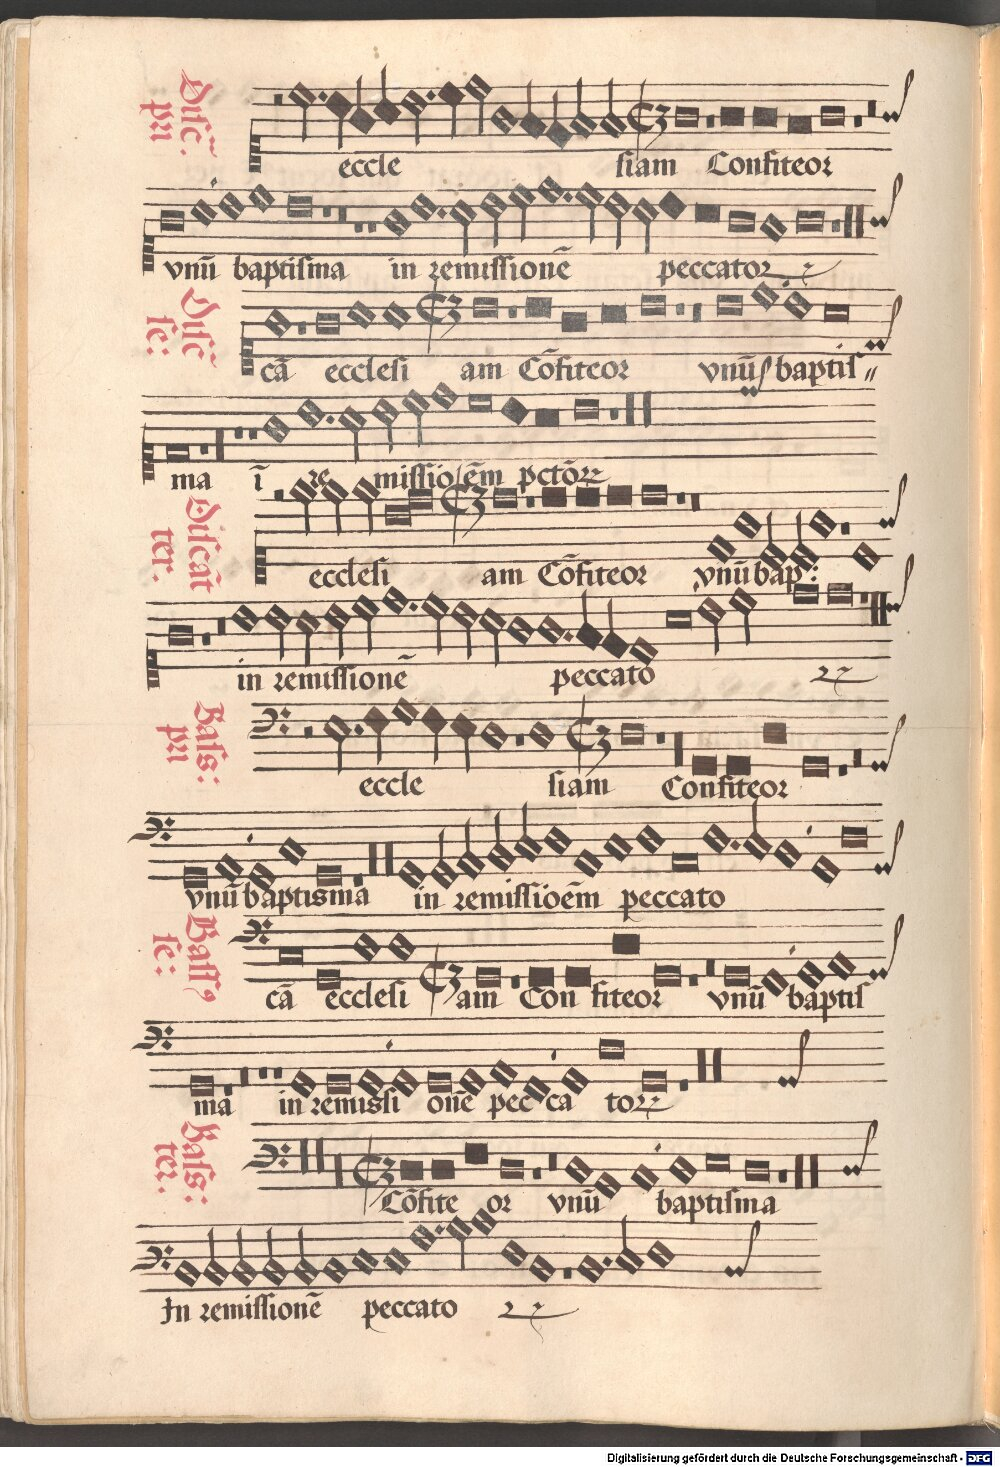 Disc̄. pri
eccle siam Confiteor
vnū baptisma in remissionē peccator
Disc̄ se:
cā ecclesi am Cōfiteor vnū baptis
ma ī re missio em̄ pctōr
Discāt ter.
ecclesi am Cōfiteor vnū bap:
in remissionē peccato
Bass: pri
eccle siam Confiteor
vnū baptisma in remissioēm peccato
Bass se:
cā ecclesi am Con fiteor vnū baptis
ma in remissi onē pec ca tor
Bass: ter.
Cōfite or vnū baptisma
In remissionē peccato
Digitalisierung gefördert durch die Deutsche Forschungsgemeinschaft - DFG